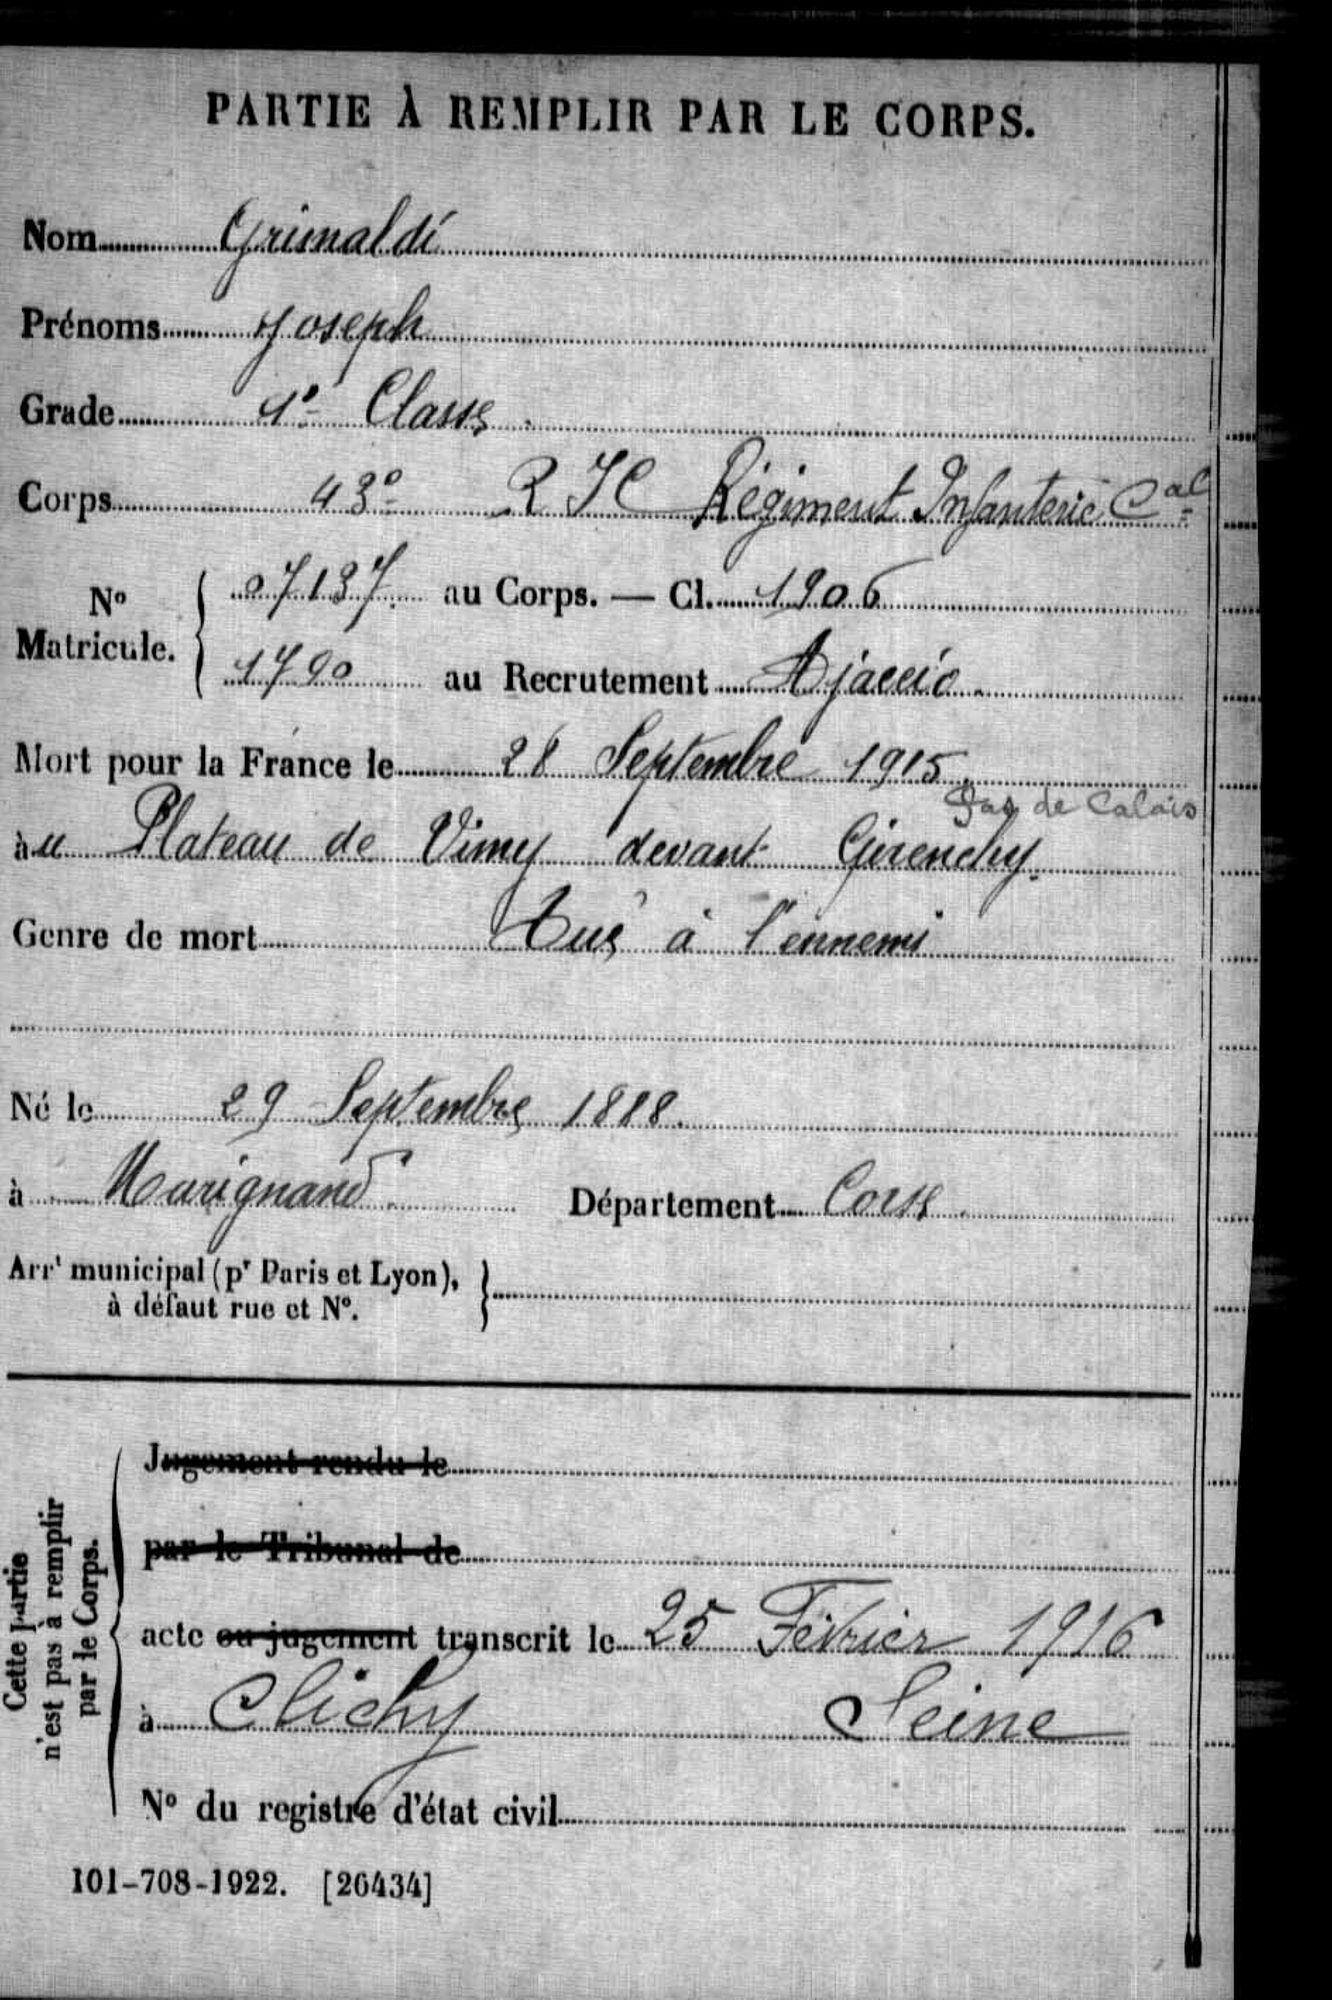 PARTIE À REMPLIR PAR LE CORPS.
Nom Grimaldi
Prénoms Joseph
Grade 1e Classe
Corps 43e R I C Régiment Infanterie Cal
No Matricule. 07137. au Corps. — Cl. 1906
1790 au Recrutement Ajaccio.
Mort pour la France le 28 Septembre 1915.
Pas de Calais
àu Plateau de Vimy devant Givenchy.
Genre de mort Tué à l'ennemi
Né le 29 Septembre 1888.
à Département Corse.
Arrt municipal (pr Paris et Lyon),
à défaut rue et No.
Cette partie
n'est pas à remplir
par le Corps.
Jugement rendu le
par le Tribunal de
acte ou jugement transcrit le 25 Février 1916
à Clichy Seine
No du registre d'état civil
101-708-1922. [26434]